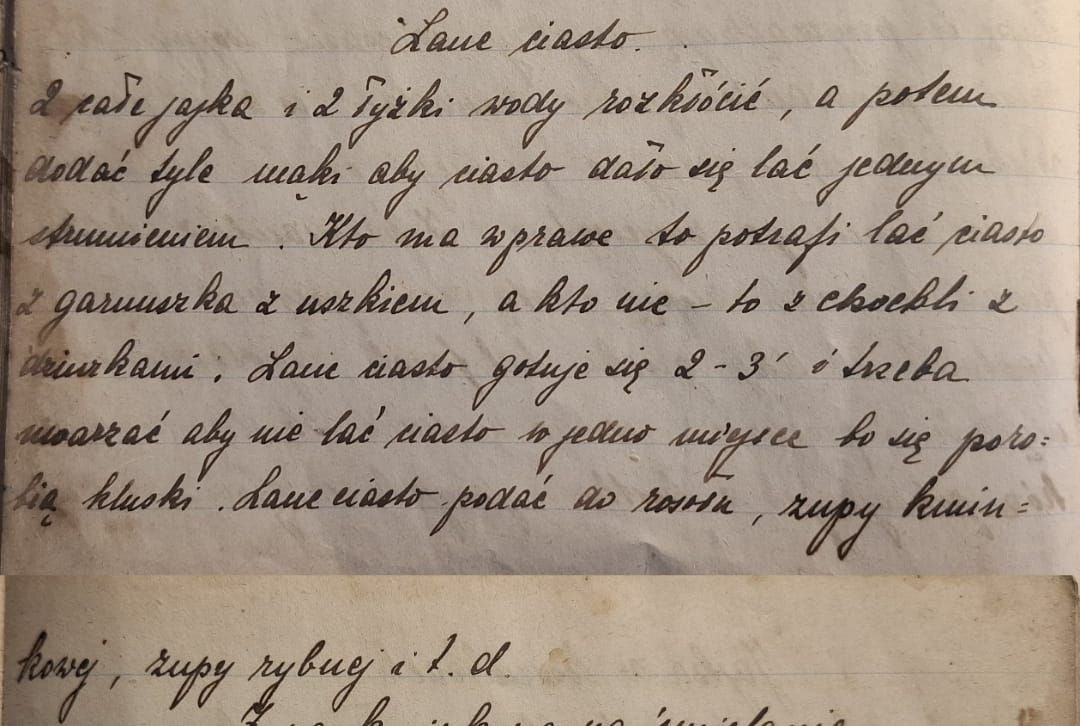 Lane ciasto.
2 całe jajka i 2 łyżki wody rozkłócić, a potem
dodać tyle mąki aby ciasto dało się lać jednym
strumieniem. Kto ma wprawe to potrafi lać ciasto
z garnuszka z uszkiem, a kto nie – to z chochli z
dziurkami. Lane ciasto gotuje się 2 – 3' i trzeba
uwarzać aby nie lać ciasto w jedno miejsce bo się poro=
bią kluski. Lane ciasto podać do rosołu, zupy kmin=
kowej, zupy rybnej i t. d.